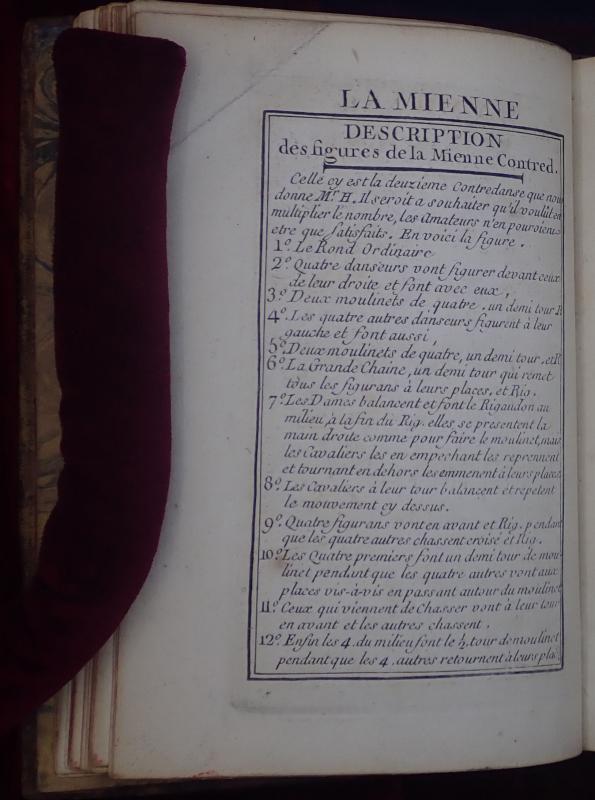 LA MIENNE
DESCRIPTION
des figures de la Mienne Contred.
Celle cy est la deuzieme Contredanse que nous
donne Mr. H. Il seroit a souhaiter qu'il voulût en
multiplier le nombre, les Amateurs n'en pouroient
etre que satisfaits. En voici la figure.
1º. Le Rond Ordinaire
2º. Quatre danseurs vont figurer devant ceux
de leur droite et font avec eux,
3º. Deux moulinets de quatre, un demi tour R
4º. Les quatre autres danseurs figurent à leur
gauche et font aussi,
5º. Deux moulinets de quatre, un demi tour, et R
6º. La Grande Chaine, un demi tour qui remet
tous les figurans à leurs places, et Rig.
7º. Les Dames balancent et font le Rigaudon au
milieu, à la fin du Rig. elles se presentent la
main droite comme pour faire le moulinet, mais
les Cavaliers les en empechant les reprennent
et tournant en dehors les emmenent à leurs places
8º. Les Cavaliers à leur tour balancent et repetent
le mouvement cy dessus.
9º. Quatre figurans vont en avant et Rig. pendant
que les quatre autres chassent croisé et Rig.
10º. Les Quatre premiers font un demi tour de mou-
linet pendant que les quatre autres vont aux
places vis-à-vis en passant autour du moulinet
11º. Ceux qui viennent de Chasser vont à leur tour
en avant et les autres chassent.
12º. Enfin les 4. du milieu font le ½ tour de moulinet
pendant que les 4. autres retournent à leurs plac